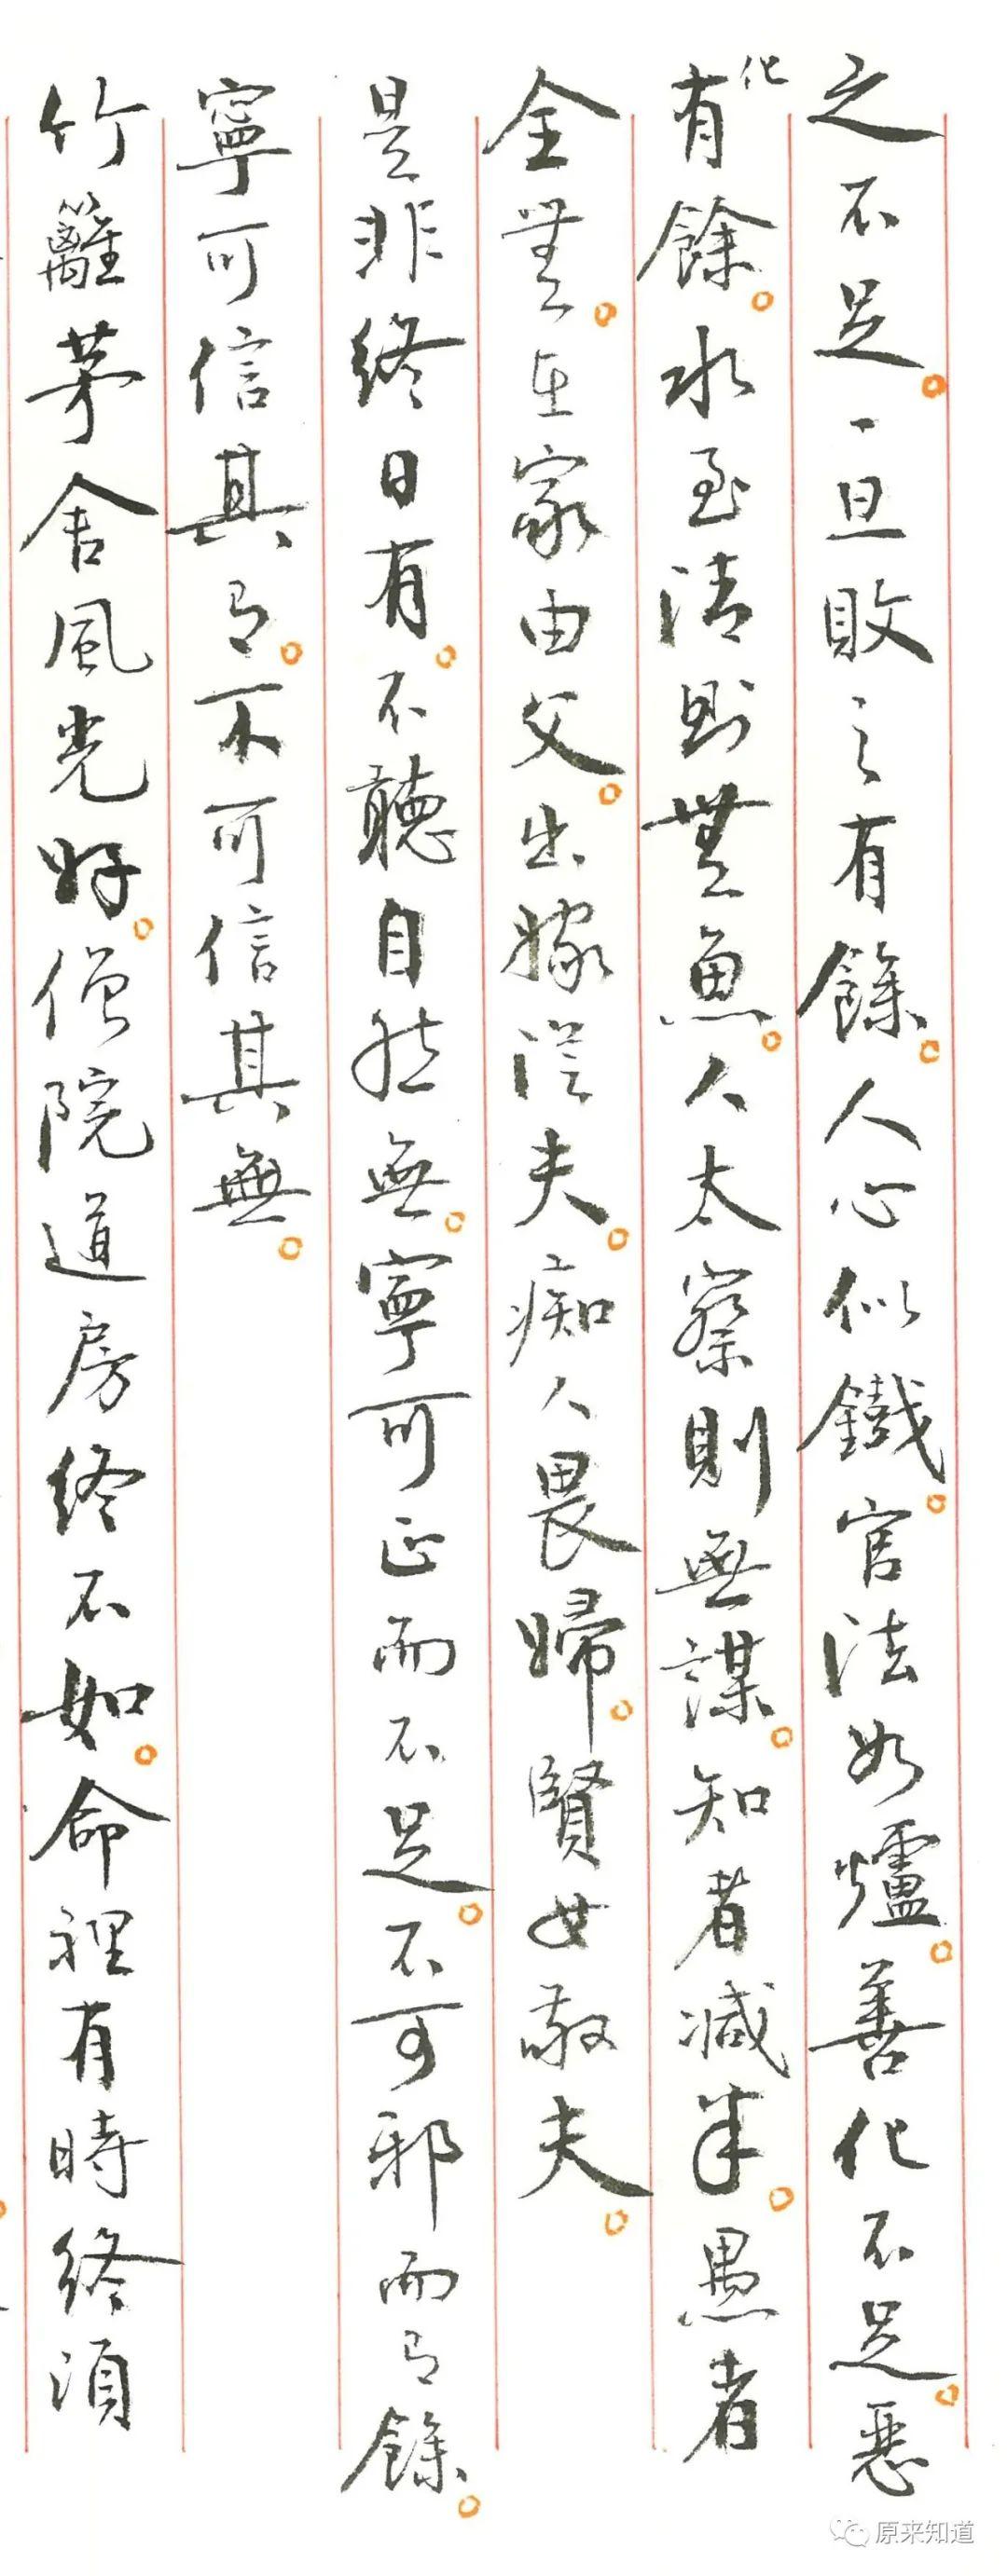 之不足。一旦敗之有餘。人心似鐵。官法如爐。善化不足。惡
化
有餘。水至清則無魚。人太察則無謀。知者減半。愚者
全無。在家由父。出嫁從夫。痴人畏婦。賢女敬夫。
是非終日有。不聽自然無。寧可正而不足。不可邪而有餘。
寧可信其有。不可信其無。
竹籬茅舍風光好。僧院道房終不如。命裡有時終須
原来知道